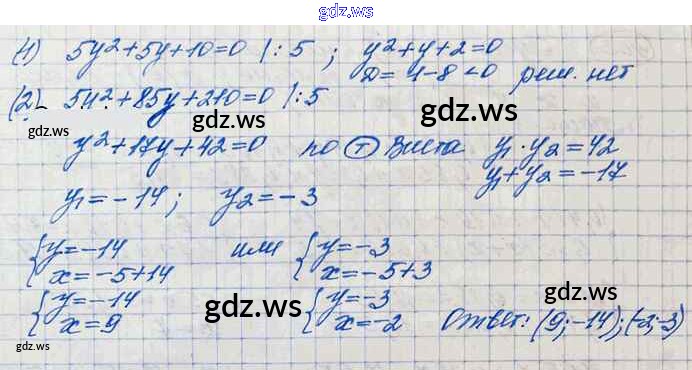 gdz.ws
(1) 5y²+5y+10=0 |:5 ; y²+y+2=0
D= 1-8<0 реш. нет
(2) 5y²+85y+210=0 |:5
gdz.ws gdz.ws gdz.ws
y²+17y+42=0 по Т Виета y₁·y₂=42
y₁+y₂=-17
y₁=-14; y₂=-3
{y=-14 или {y=-3
x=-5+14 x=-5+3
gdz.ws
{y=-14 gdz.ws {y=-3
x=9 x=-2 Ответ: (9;-14);(-2;-3)
gdz.ws